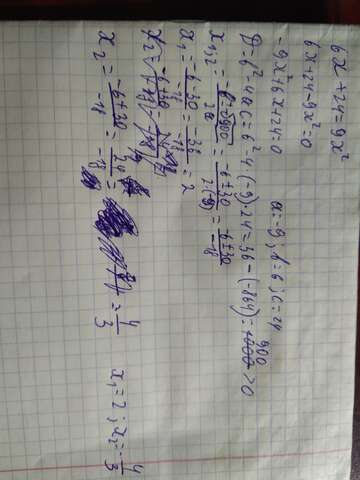 6x + 24 = 9x²
6x + 24 - 9x² = 0
-9x² + 6x + 24 = 0   a = -9; b = 6; c = 24
D = b² - 4ac = 6² - 4·(-9)·24 = 36 - (-864) = 900 > 0
x₁,₂ = -6±30 / 2·(-9) = -6±30 / -18
x₁ = -6-30 / -18 = -36 / -18 = 2
x₂ = -6+30 / -18 = 24 / -18 = 4/3   x₁ = 2; x₂ = -4/3